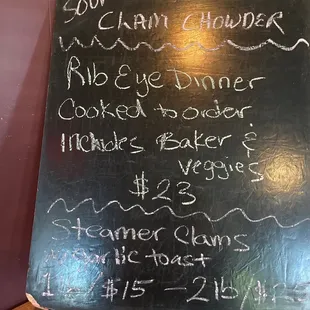 Soup
CLAM CHOWDER
Rib Eye Dinner
Cooked to order
Includes Baker &
veggies
$23
Steamer Clams
w/garlic toast
1lb/$15 - 2lb/$